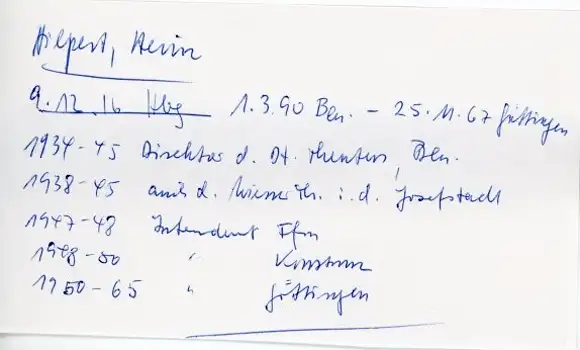 Hilpert, Heinz
9.12.16 Hbg 1.3.90 Bln. - 25.11.67 Göttingen
1934-45 Direktor d. Dt. Theaters, Bln.
1938-45 auch d. Wiener Th. i. d. Josefstadt
1947-48 Intendant Ffm
1948-50 " Konstanz
1950-65 " Göttingen